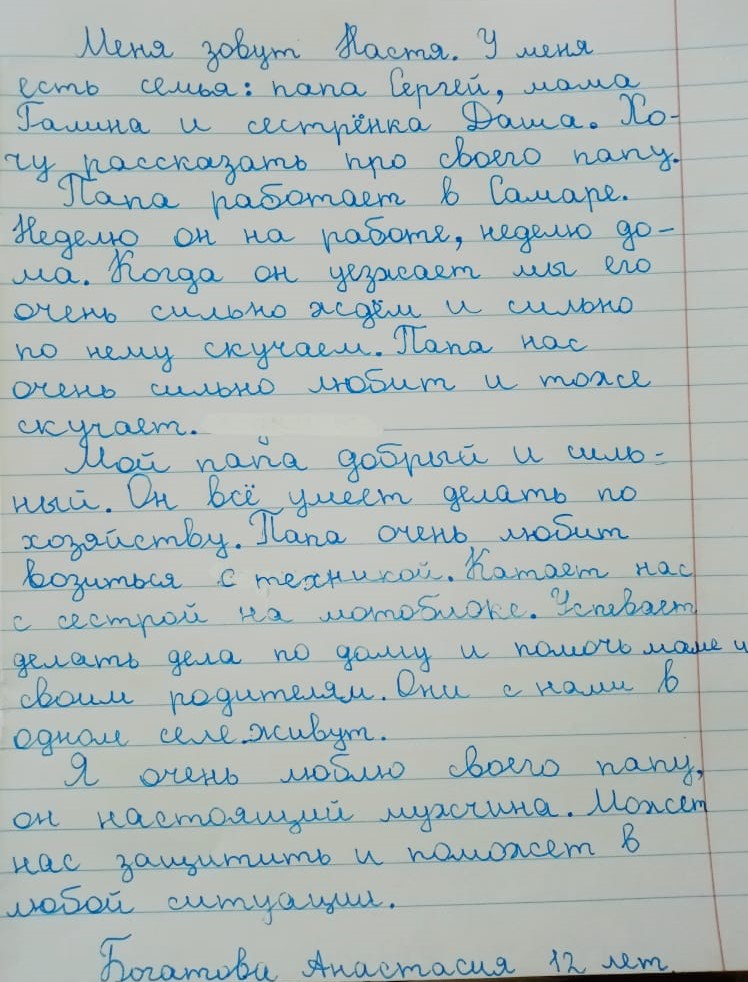 Меня зовут Настя. У меня
есть семья: папа Сергей, мама
Галина и сестрёнка Даша. Хо-
чу рассказать про своего папу.
Папа работает в Самаре.
Неделю он на работе, неделю до-
ма. Когда он уезжает мы его
очень сильно ждём и сильно
по нему скучаем. Папа нас
очень сильно любит и тоже
скучает.
Мой папа добрый и силь-
ный. Он всё умеет делать по
хозяйству. Папа очень любит
возиться с техникой. Катает нас
с сестрой на мотоблоке. Успевает
делать дела по дому и помочь маме и
своим родителям. Они с нами в
одном селе живут.
Я очень люблю своего папу,
он настоящий мужчина. Может
нас защитить и поможет в
любой ситуации.
Богатова Анастасия 12 лет